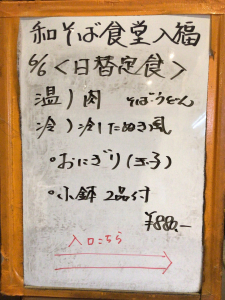 和そば食堂入福
6/6<日替定食>
温)肉 そばorうどん
冷)冷したぬき風
•おにぎり(玉子)
•小鉢2品付
¥880.-
入口こちら